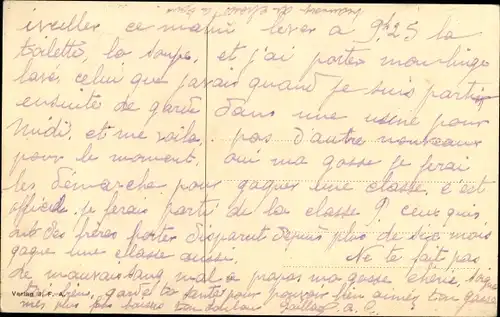 eveiller ce matin lever a 9h25 la
toilette, la soupe, et j'ai porter mon linge
laver celui que j'avais quand je suis partir
ensuite de garde dans une usine pour
midi, et me voila, pas d'autre nouveaux
pour le moment, oui ma gosse je ferai
les démarche pour gagner une classe, c'est
officiel je ferais parti de la classe 9 ceux qui
ont des frères porter disparut depuis plus de six mois
gagne une classe aussi. Ne te fait pas
de mauvais sang mal a propos ma gosse cherie, soigne
toi bien, garde ta santé pour pouvoir bien aimer ton gosse
mes plus doux baisers ton
Verlag